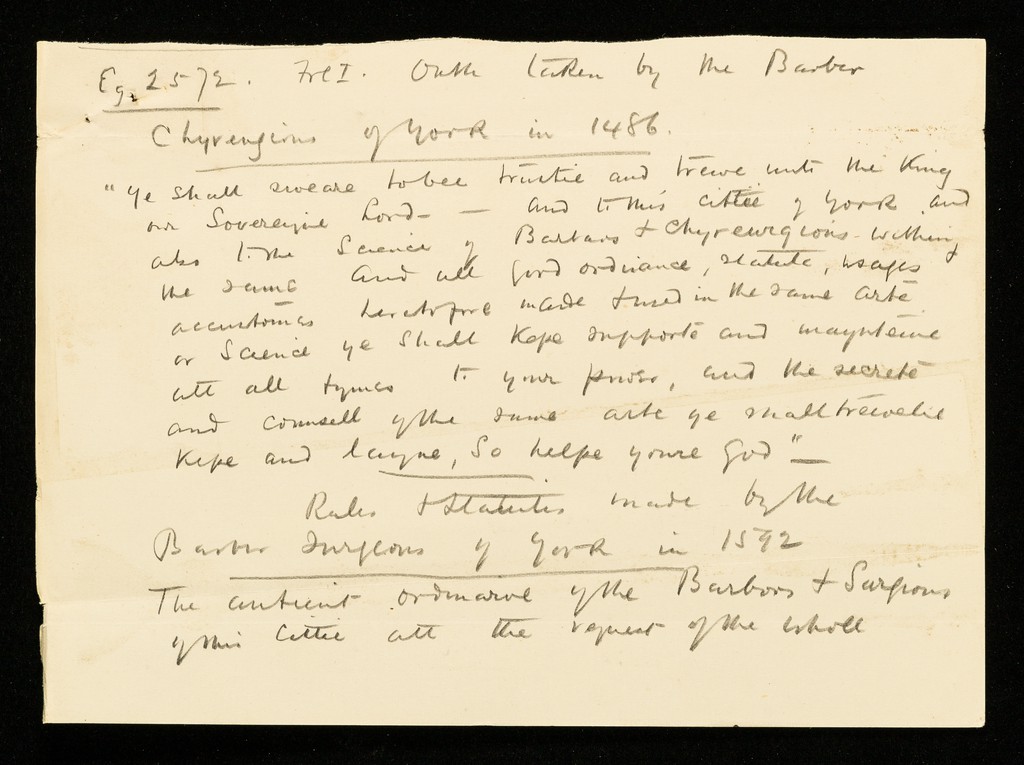 Eg. 2572. Fol I. Oath taken by the Barbor
Chyrengions of York in 1486.
"Ye shall sweare to bee trustie and trewe unto the King
our Sovereigne Lord — — and to this cittie of York and
also to the Science of Barbars & Chyreurgions within
the same And all good ordinance, statute, usages &
accustomas heretofore made & used in the same arte
or Science ye shall Kepe supporte and maynteine
att all tymes to your power, and the secrete
and counsell of the same arte ye shall trewelie
Kepe and layne, So helpe youre God"—
Rules & Statutes made by the
Barber Surgeons of York in 1592
The antient ordinance of the Barbors & Surgions
of this Cittie att the request of the wholl